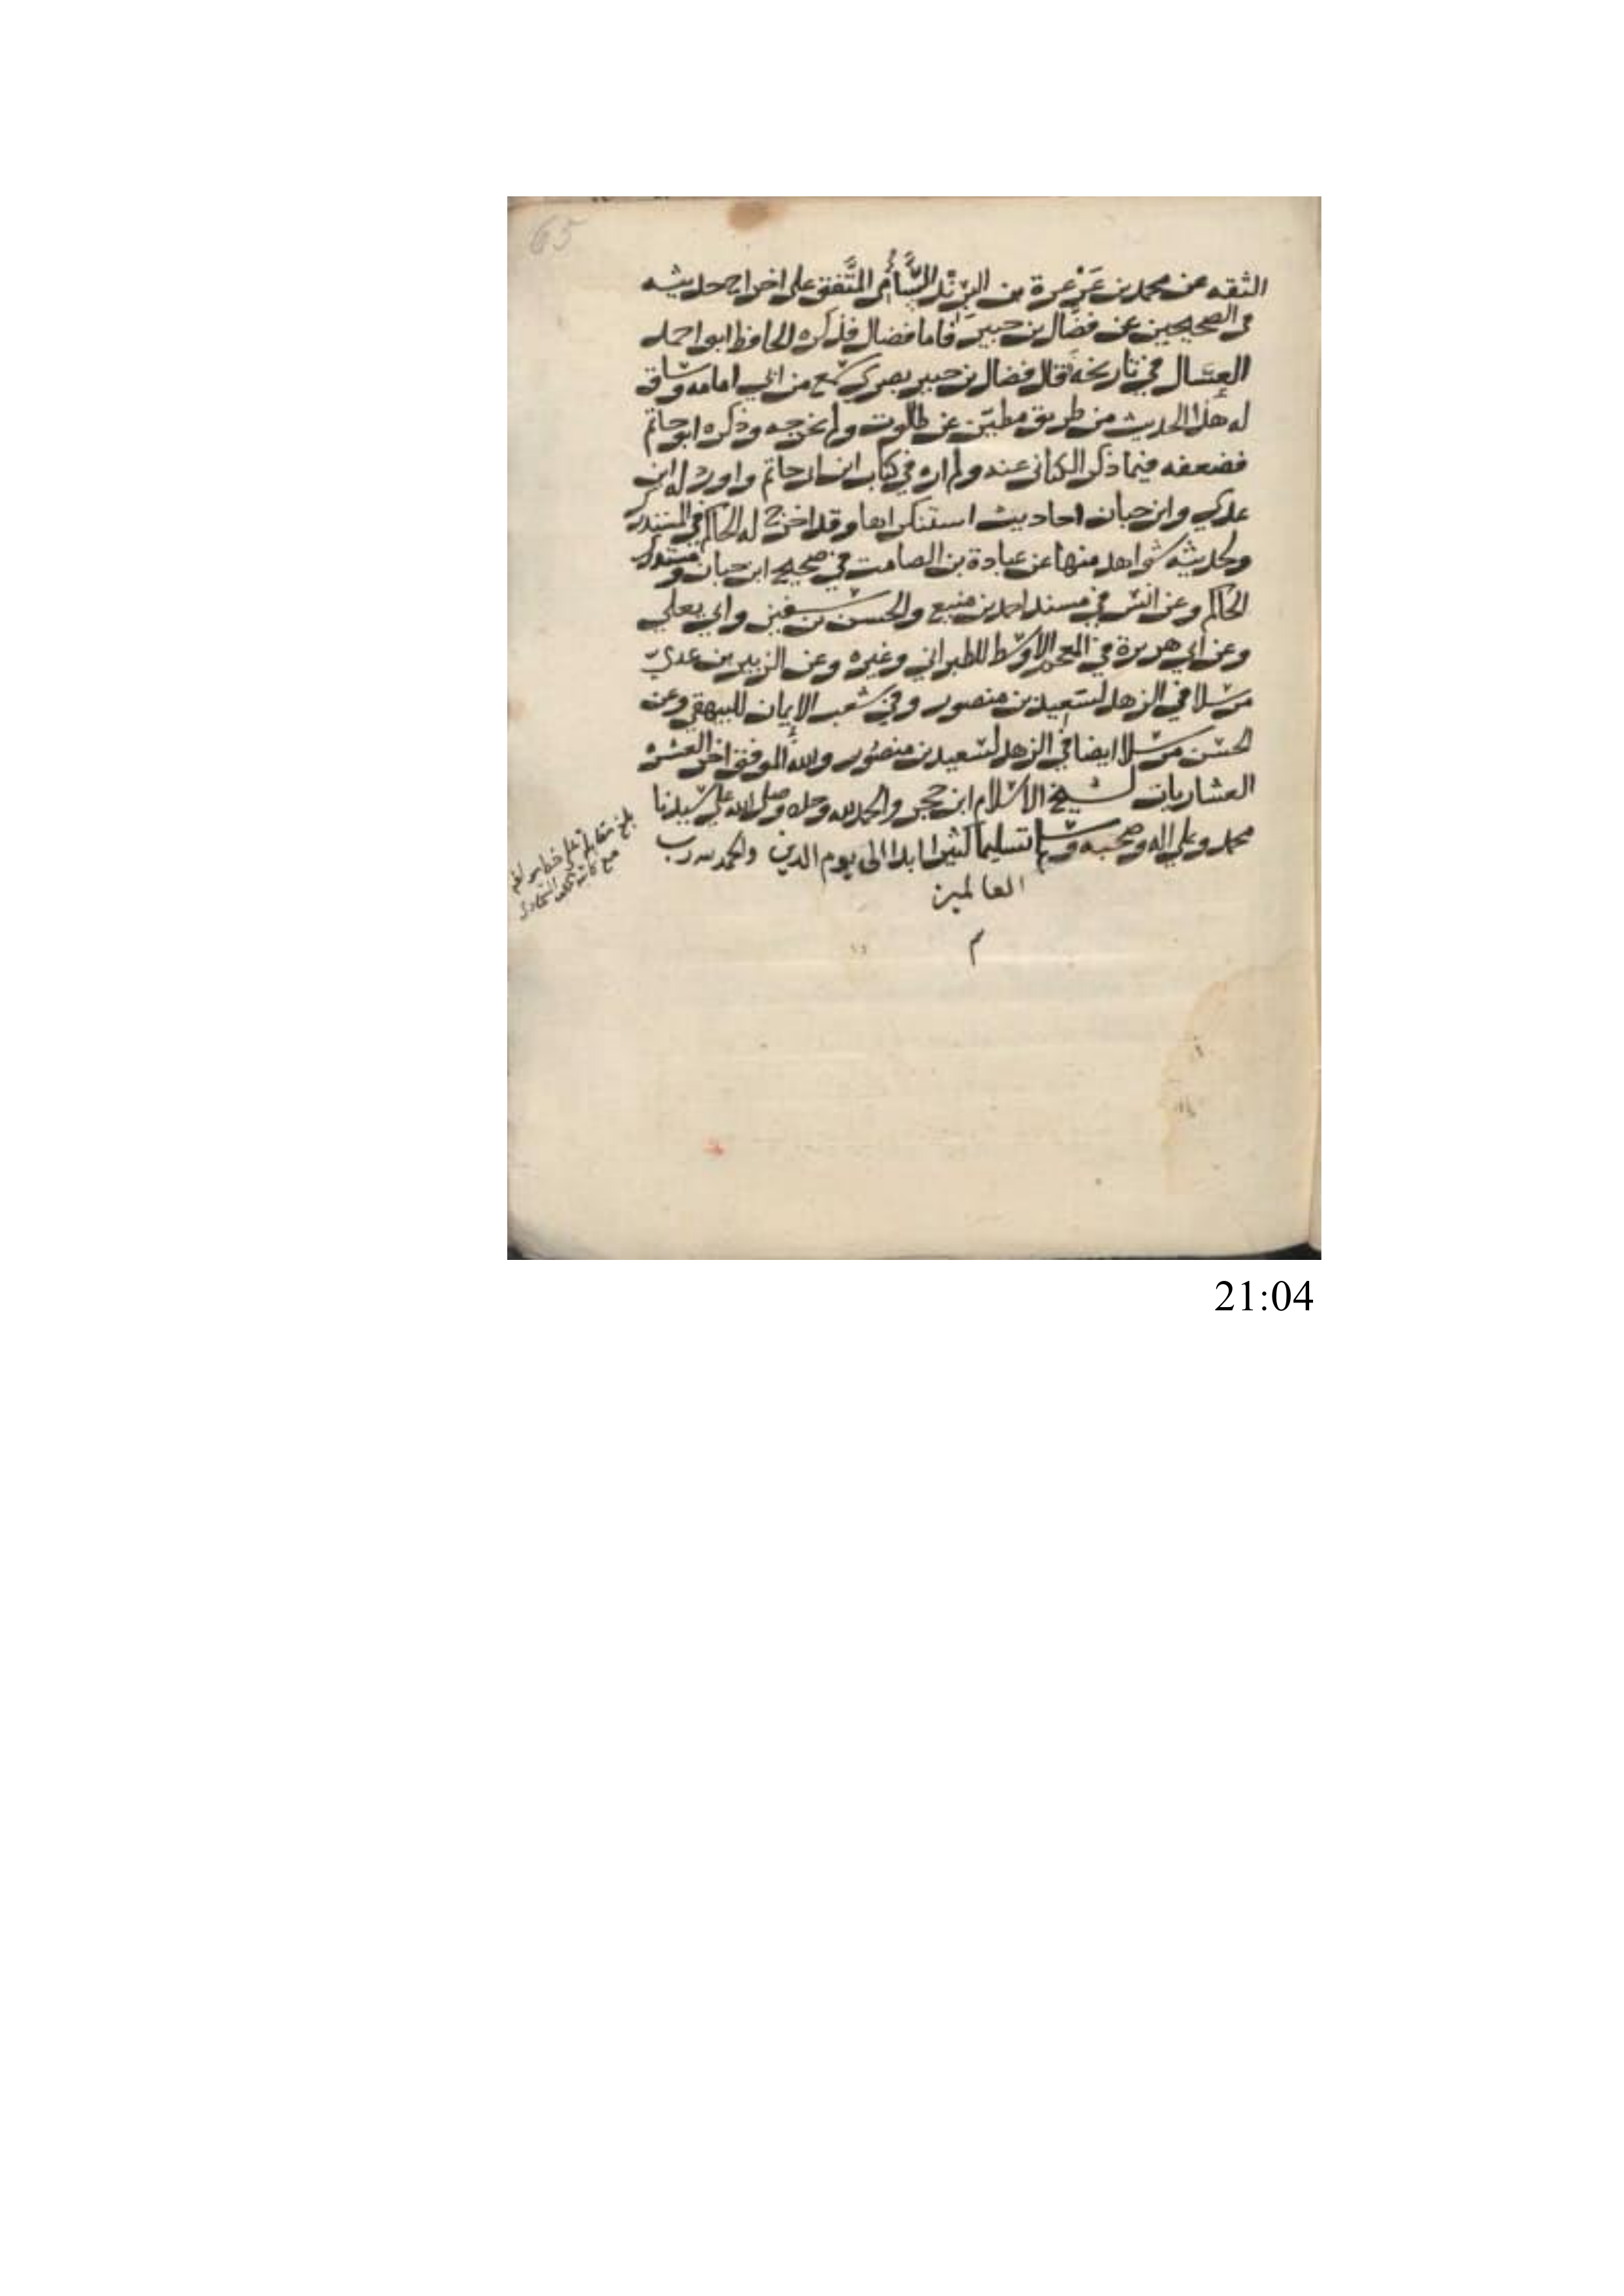 65
الثقه عن محمد بن عَرْعرة بن البِرِنْد السَّامِى المتَّفق على اخراج حديثه
فى الصحيحين عن فضَّال بن جبير فاما فضال فذكره الحافظ ابو احمد
العسّال في تاريخه قال فضال بن جبير بصري سمع من ابي امامه وساق
له هذا الحديث من طريق مطيّن عن طالوت ولم يخرجه وذكره ابو حاتم
فضعفه فيما ذكر الكنانى عنه ولم اره في كتاب ابن ابى حاتم واورد له ابن
عدي وابن حبان احاديث استنكراها وقد اخرج له الحاكم في المستدرك
ولحديثه شواهد منها عن عبادة بن الصامت في صحيح ابن حبان ومستدرك
الحاكم وعن انس في مسند احمد بن منيع والحسن بن سفين وابي يعلي
وعن ابي هريرة في المعجم الاوسط للطبراني وغيره وعن الزبير بن عديّ
مرسلا في الزهد لسعيد بن منصور وفي شعب الايمان للبيهقي وعن
الحسن مرسلا ايضا في الزهد لسعيد بن منصُور والله الموفق اخر العشرة
العشاريات لشيخ الاسلام ابن حجر والحمد لله وحده وصلى الله على سيدنا
محمد وعلي اله وصحبه وسلم تسليما كثيرا ابدا الى يوم الدين والحمد لله رب
العالمين
م
بلغ مقابلة على خط مولفه
مع كاتبه السخاوى
21:04